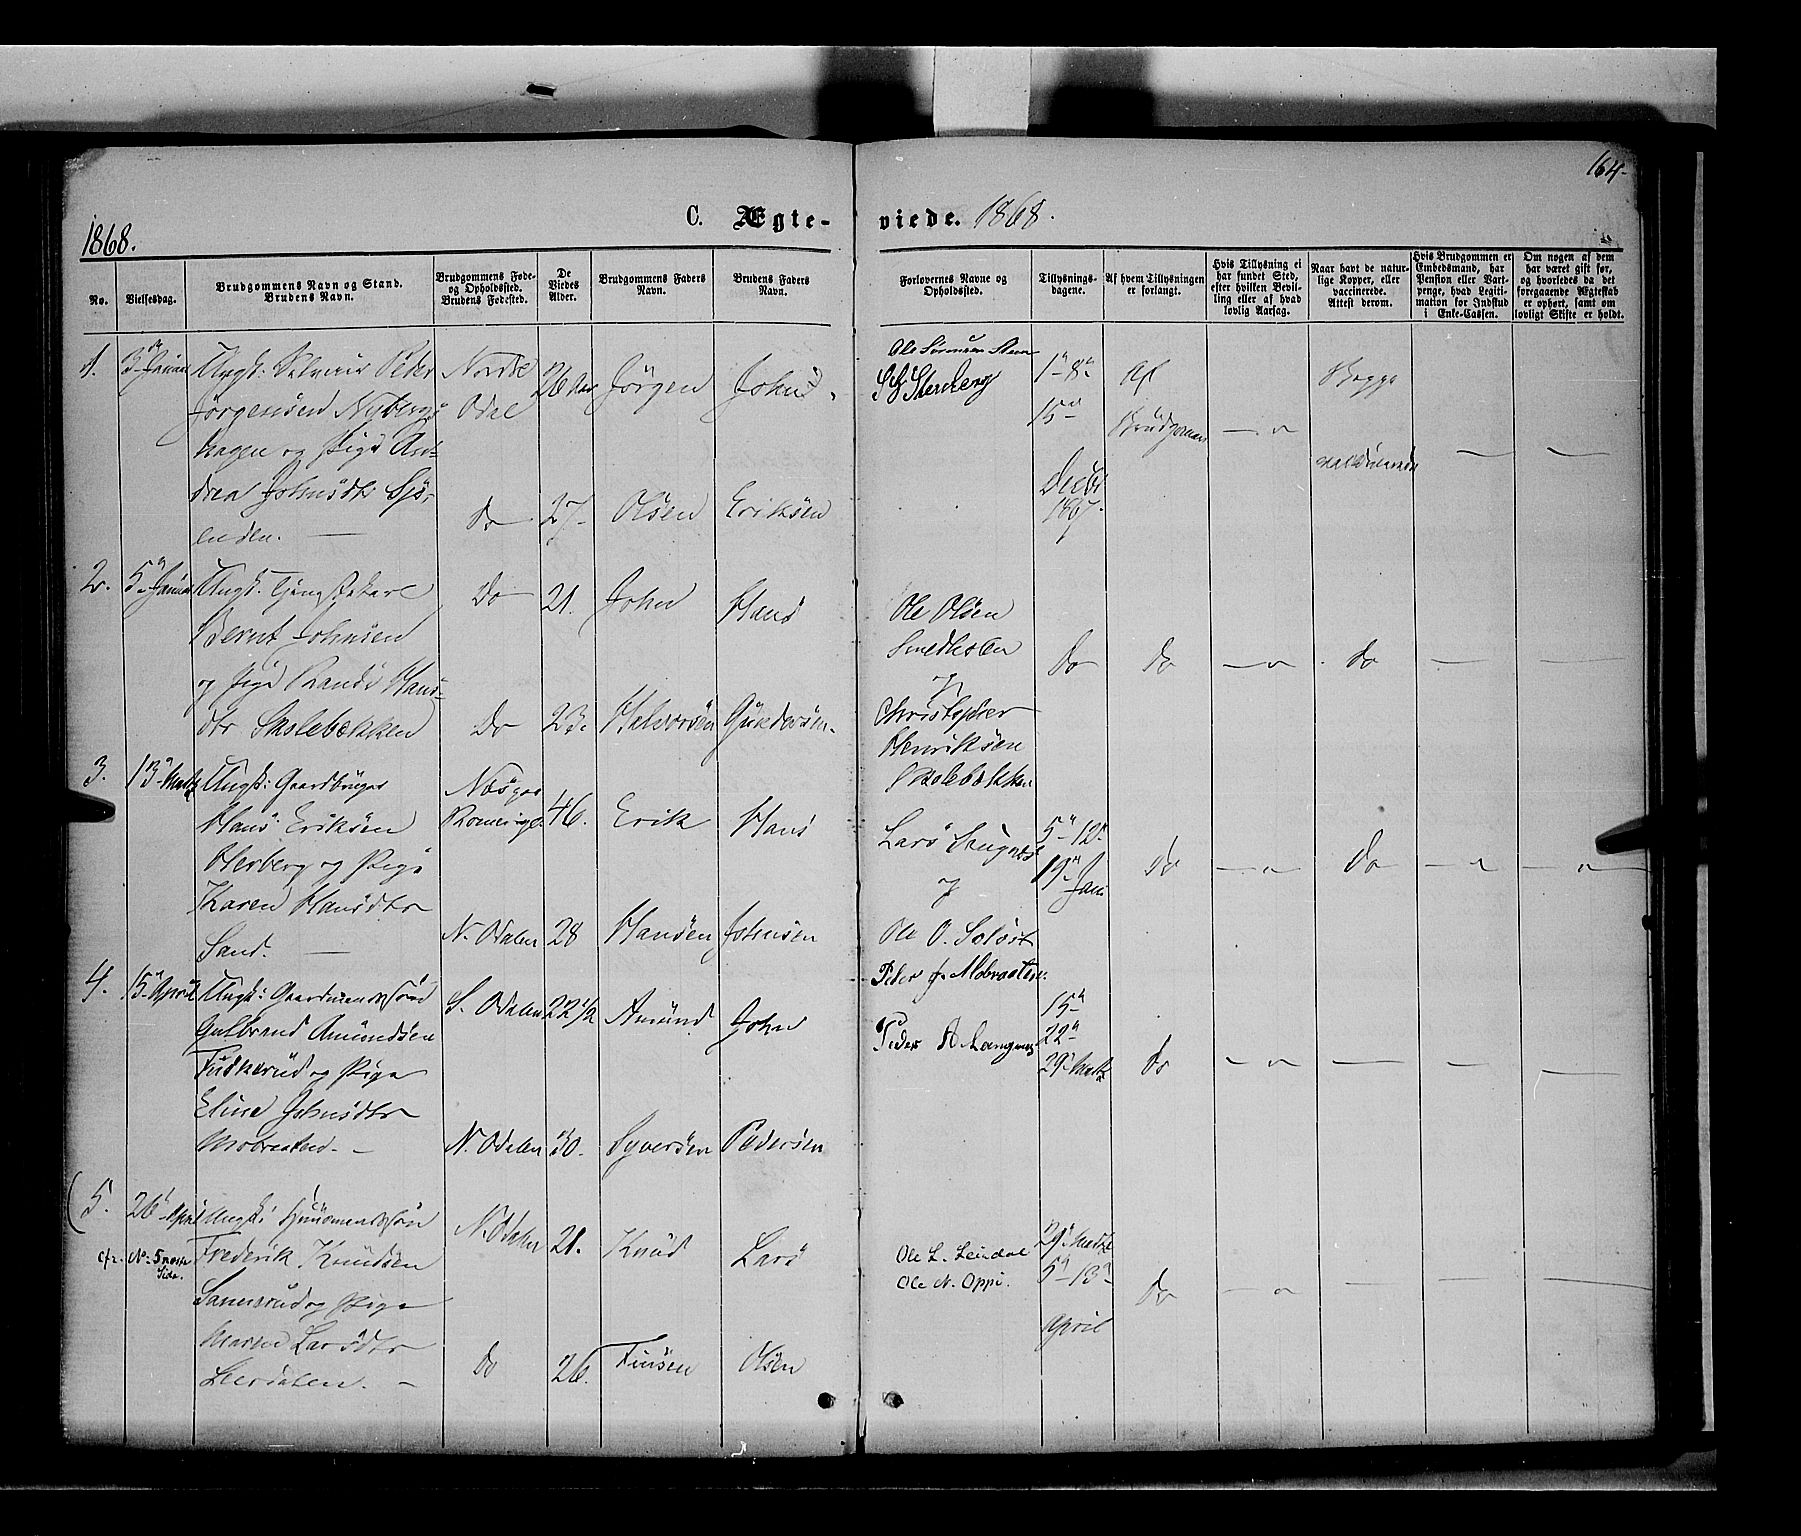 164-
1868.
C. Ægte-
viede. 1868.
No.
Vielsesdag.
Brudgommens Navn og Stand.
Brudens Navn.
Brudgommens Føde-
og Opholdssted.
Brudens Fødested.
De
Viedes
Alder.
Brudgommens Faders
Navn.
Brudens Faders
Navn.
Forlovernes Navne og
Opholdssted.
Tillysnings-
dagene.
Af hvem Tillysningen
er forlangt.
Hvis Tillysning ei
har fundet Sted,
efter hvilken Bevil-
ling eller af hvad
lovlig Aarsag.
Naar havt de natur-
lige Kopper, eller
vaccinerede.
Attest derom.
Hvis Brudgommen er
Embedsmand, har
Pension eller Vart-
penge, hvad Legiti-
mation for Indskud
i Enke-Cassen.
Om nogen af dem
har været gift før,
og hvorledes da det
foregaaende Ægteskab
er ophørt, samt om
lovligt Skifte er holdt.
1.
3 Januar
Ungk: Peder
Jörgensen Nybergs
hagen og Pige An-
drea Johnsdtr Sjö-
enden. —
Nordre
Odal
Do
26 Aar
27-
Jörgen
Olsen
John
Eriksen
Ole Sörensen Steen
1- 8-
15-
Decbr
1867.
Af
Brudgommen
Begge
vaccinerede
2.
5. Januar
Ungk. Tjenestekarl
Bernt Johnsen
og Pige Randi Hans-
dtr Skolebækken
Do
Do
21.
23.
John
Halvorsen
Hans
Gundersen.
Ole Olsen
Smedholen
og
Christopher
Henriksen
Skolebækken
Do
Do
Do
3.
13- Marts
Ungk: Gaardbruger
Hans Eriksen
Herberg og Pige
Karen Hansdtr
Sand. —
Næs
Romerige
N. Odalen
46.
28
Erik
Hansen
Hans
Johnsen
Lars
og
Ole O.
5- 12-
19- Jan
Do
Do
4.
15- April
Ungk: Gaardmandssön
Gulbrand Amundsen
og Pige
Eline Johnsdtr
Mobraaten. -
S. Odalen
N. Odalen
22 1/2
30.
Amund
Syversen
John
Pedersen
Peder J. Mobraaten.
Peder A. Langnes
15-
22-
29- Marts
Do
5.
26- April
cfr. No 5 næste
Side.
Ungk: Huusmandssön
Frederik Knudsen
og Pige
Maren Larsdtr
Leerdalen. -
N. Odalen
Do
21.
26.
Knud
Finsen
Lars
Olsen
Ole L. Leirdal
Ole N. Oppi.
29- Marts
5- 13-
April
Do